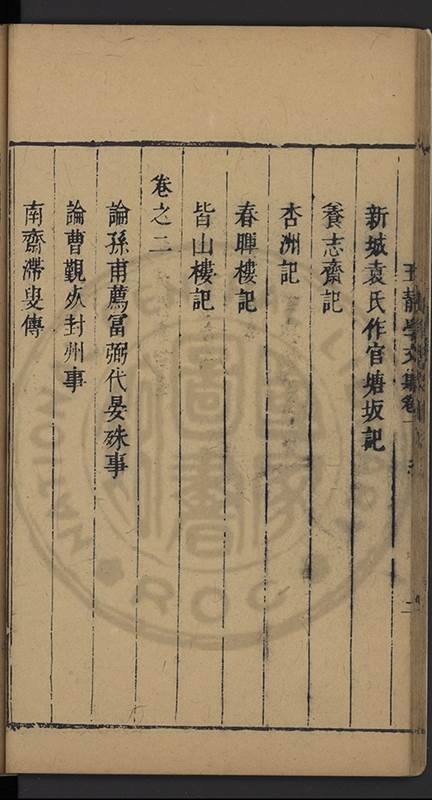 王靜學文集卷一
二
新城袁氏作官塘坂記
養志齋記
杏洲記
春暉樓記
皆山樓記
卷之二
論孫甫薦富弼代晏殊事
論曹覲死封州事
南齋滯叟傳